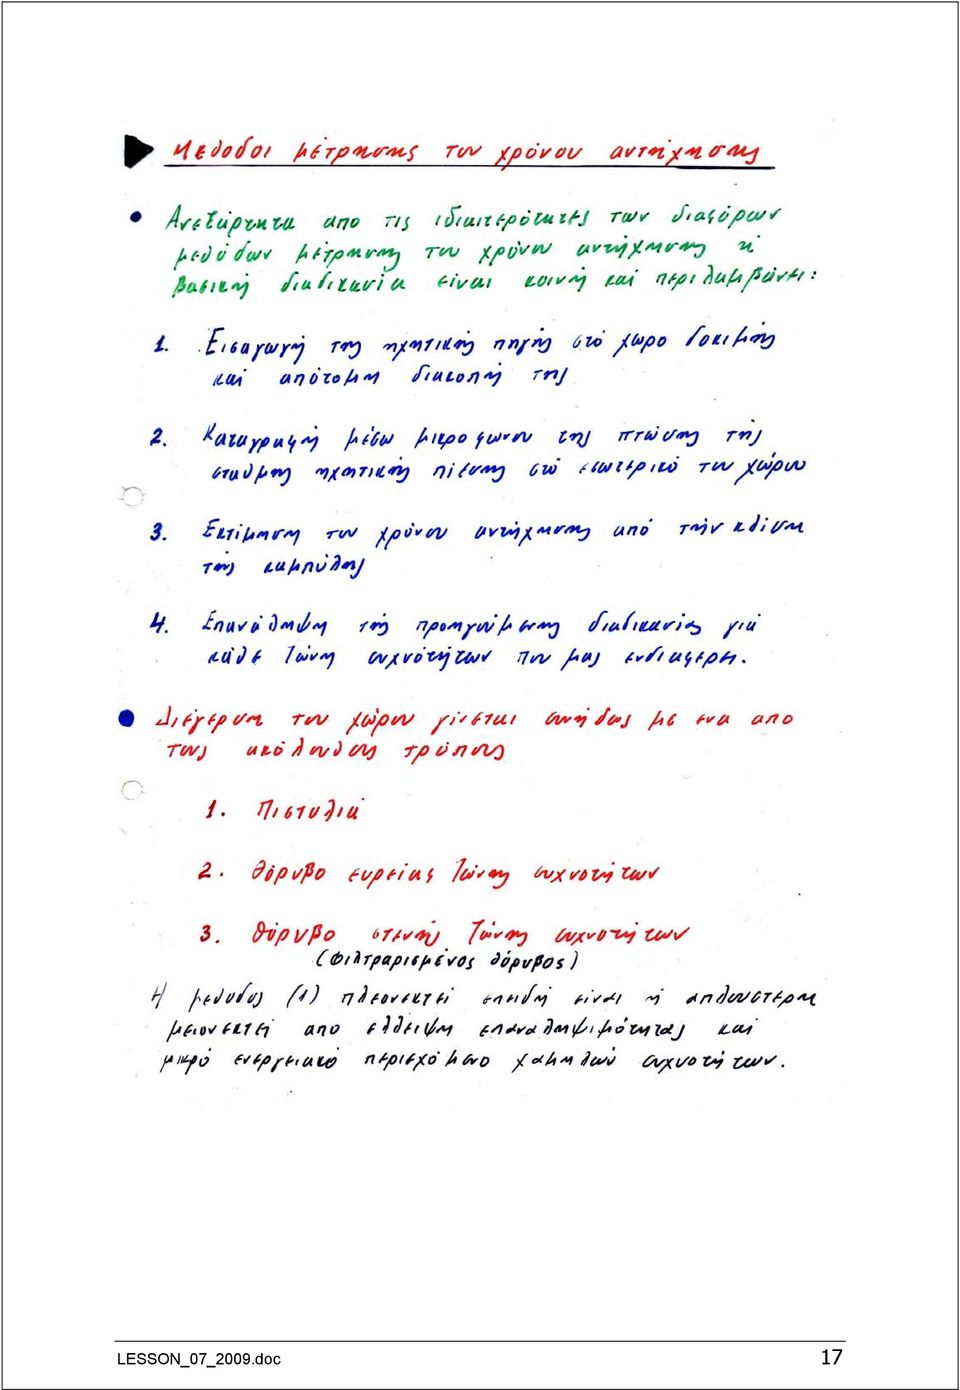 Μέθοδοι μέτρησης του χρόνου αντήχησης
Ανεξάρτητα απο τις ιδιαιτερότητες των διαφόρων
μεθόδων μέτρησης του χρόνου αντήχησης η
βασική διαδικασία είναι κοινή και περιλαμβάνει:
1. Εισαγωγή της ηχητικής πηγής στο χώρο δοκιμής
και απότομη διακοπή της
2. Καταγραφή μέσω μικροφωνου της πτώσης της
σταθμης ηχητικής πίεσης στο εσωτερικό του χώρου
3. Εκτίμηση του χρόνου αντήχησης από τήν κλίση
της καμπύλης
4. Επανάληψη τής προηγούμενης διαδικασίας γιά
κάθε ζώνη συχνότήτων που μας ενδιαφερει.
Διέγερση του χώρου γίνεται συνήθως με ενα απο
τους ακόλουθους τρόπους
1. Πιστολιά
2. θόρυβο ευρείας ζώνης συχνοτήτων
3. θόρυβο στενής ζώνης συχνοτήτων
(Φιλτραρισμένος θόρυβος)
Η μέθοδος (1) πλεονεκτεί επειδή είναι η απλουστερη
μειονεκτεί απο ελλειψη επαναληψιμότητας και
μικρό ενεργειακό περιεχόμενο χαμηλών συχνοτήτων.
LESSON_07_2009.doc 17